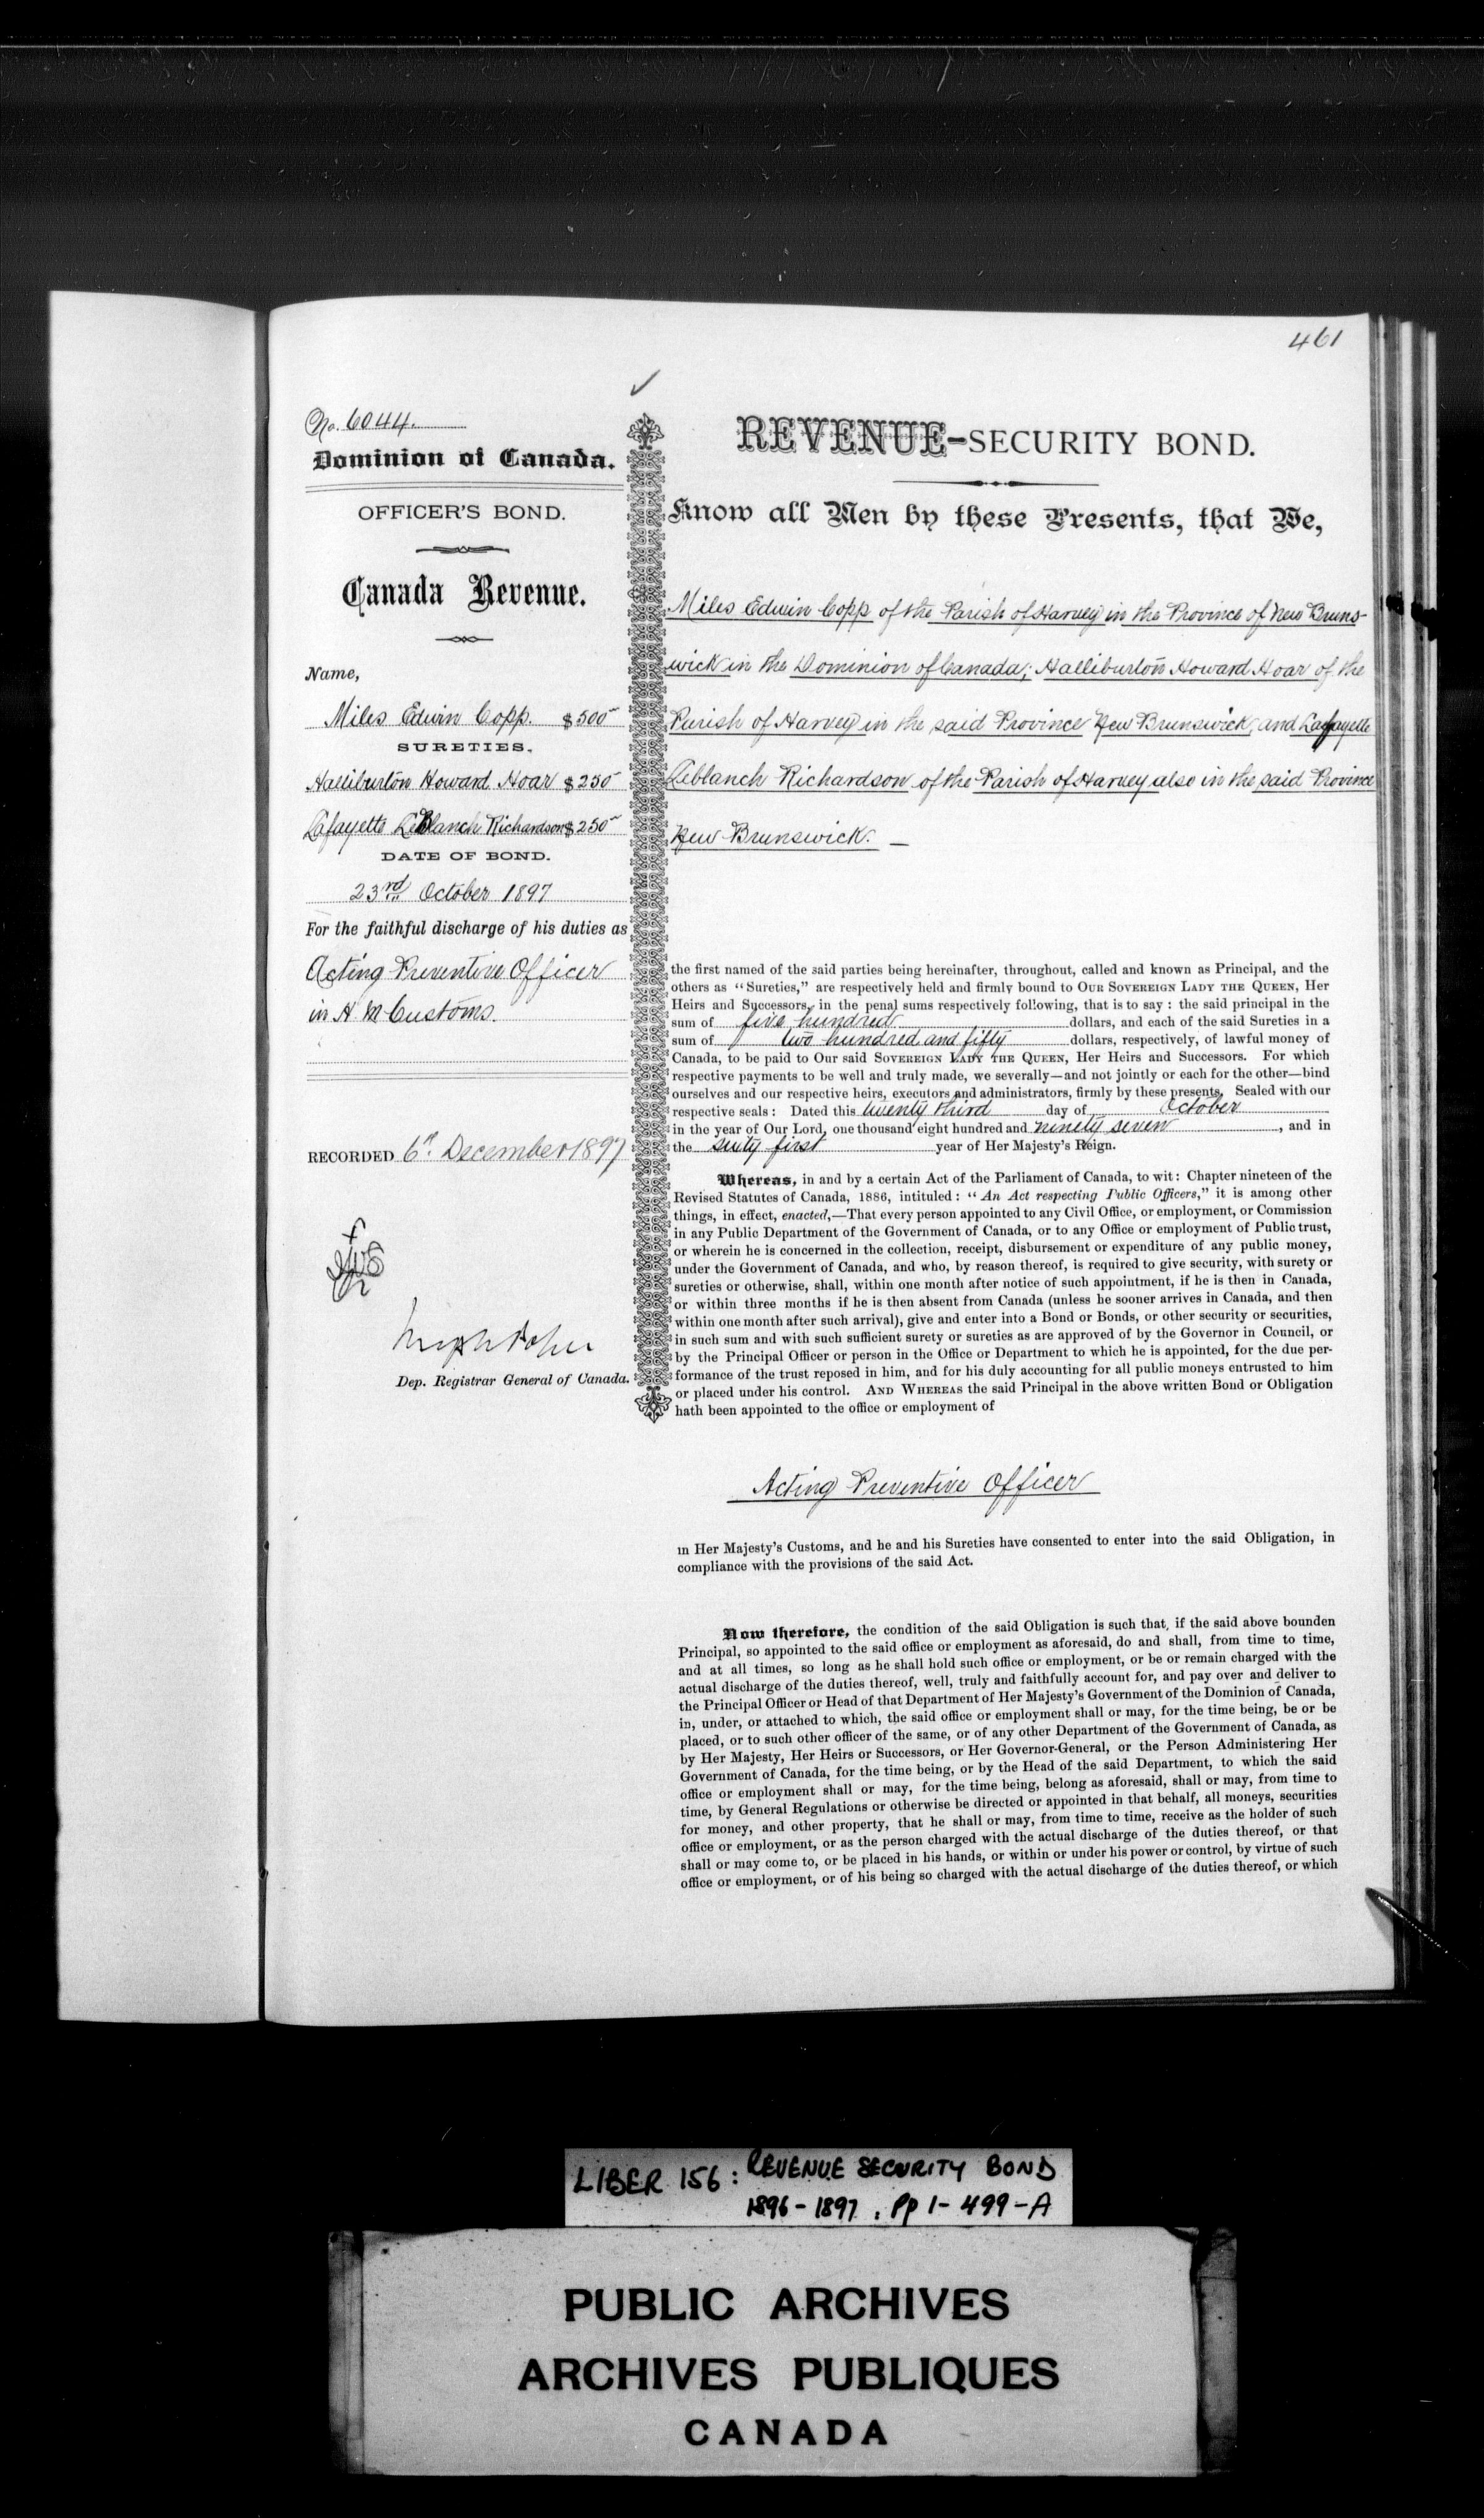 461
No. 6044.
Dominion of Canada.
OFFICER'S BOND.
Canada Revenue.
Name,
Miles Edwin Copp. $500
SURETIES.
Halliburton Howard Hoar $250
Lafayette LeBlanch Richardson $250
DATE OF BOND.
23rd October 1897
For the faithful discharge of his duties as
Acting Preventive Officer
in H M Customs.
RECORDED 6th December 1897
Dep. Registrar General of Canada.
REVENUE-SECURITY BOND.
Know all Men by these Presents, that We,
Miles Edwin Copp of the Parish of Harvey in the Province of New Bruns-
wick in the Dominion of Canada; Halliburton Howard Hoar of the
Parish of Harvey in the said Province New Brunswick, and Lafayette
Leblanch Richardson of the Parish of Harvey also in the said Province
New Brunswick. —
the first named of the said parties being hereinafter, throughout, called and known as Principal, and the
others as "Sureties," are respectively held and firmly bound to OUR SOVEREIGN LADY THE QUEEN, Her
Heirs and Successors, in the penal sums respectively following, that is to say : the said principal in the
sum of five hundred dollars, and each of the said Sureties in a
sum of two hundred and fifty dollars, respectively, of lawful money of
Canada, to be paid to Our said SOVEREIGN LADY THE QUEEN, Her Heirs and Successors. For which
respective payments to be well and truly made, we severally—and not jointly or each for the other—bind
ourselves and our respective heirs, executors and administrators, firmly by these presents. Sealed with our
respective seals : Dated this twenty third day of October
in the year of Our Lord, one thousand eight hundred and ninety seven, and in
the sixty first year of Her Majesty's Reign.
Whereas, in and by a certain Act of the Parliament of Canada, to wit: Chapter nineteen of the
Revised Statutes of Canada, 1886, intituled : "An Act respecting Public Officers," it is among other
things, in effect, enacted,—That every person appointed to any Civil Office, or employment, or Commission
in any Public Department of the Government of Canada, or to any Office or employment of Public trust,
or wherein he is concerned in the collection, receipt, disbursement or expenditure of any public money,
under the Government of Canada, and who, by reason thereof, is required to give security, with surety or
sureties or otherwise, shall, within one month after notice of such appointment, if he is then in Canada,
or within three months if he is then absent from Canada (unless he sooner arrives in Canada, and then
within one month after such arrival), give and enter into a Bond or Bonds, or other security or securities,
in such sum and with such sufficient surety or sureties as are approved of by the Governor in Council, or
by the Principal Officer or person in the Office or Department to which he is appointed, for the due per-
formance of the trust reposed in him, and for his duly accounting for all public moneys entrusted to him
or placed under his control. AND WHEREAS the said Principal in the above written Bond or Obligation
hath been appointed to the office or employment of
Acting Preventive Officer
in Her Majesty's Customs, and he and his Sureties have consented to enter into the said Obligation, in
compliance with the provisions of the said Act.
Now therefore, the condition of the said Obligation is such that, if the said above bounden
Principal, so appointed to the said office or employment as aforesaid, do and shall, from time to time,
and at all times, so long as he shall hold such office or employment, or be or remain charged with the
actual discharge of the duties thereof, well, truly and faithfully account for, and pay over and deliver to
the Principal Officer or Head of that Department of Her Majesty's Government of the Dominion of Canada,
in, under, or attached to which, the said office or employment shall or may, for the time being, be or be
placed, or to such other officer of the same, or of any other Department of the Government of Canada, as
by Her Majesty, Her Heirs or Successors, or Her Governor-General, or the Person Administering Her
Government of Canada, for the time being, or by the Head of the said Department, to which the said
office or employment shall or may, for the time being, belong as aforesaid, shall or may, from time to
time, by General Regulations or otherwise be directed or appointed in that behalf, all moneys, securities
for money, and other property, that he shall or may, from time to time, receive as the holder of such
office or employment, or as the person charged with the actual discharge of the duties thereof, or that
shall or may come to, or be placed in his hands, or within or under his power or control, by virtue of such
office or employment, or of his being so charged with the actual discharge of the duties thereof, or which
LIBER 156: REVENUE SECURITY BOND
1896-1897, Pp 1-499-A
PUBLIC ARCHIVES
ARCHIVES PUBLIQUES
CANADA